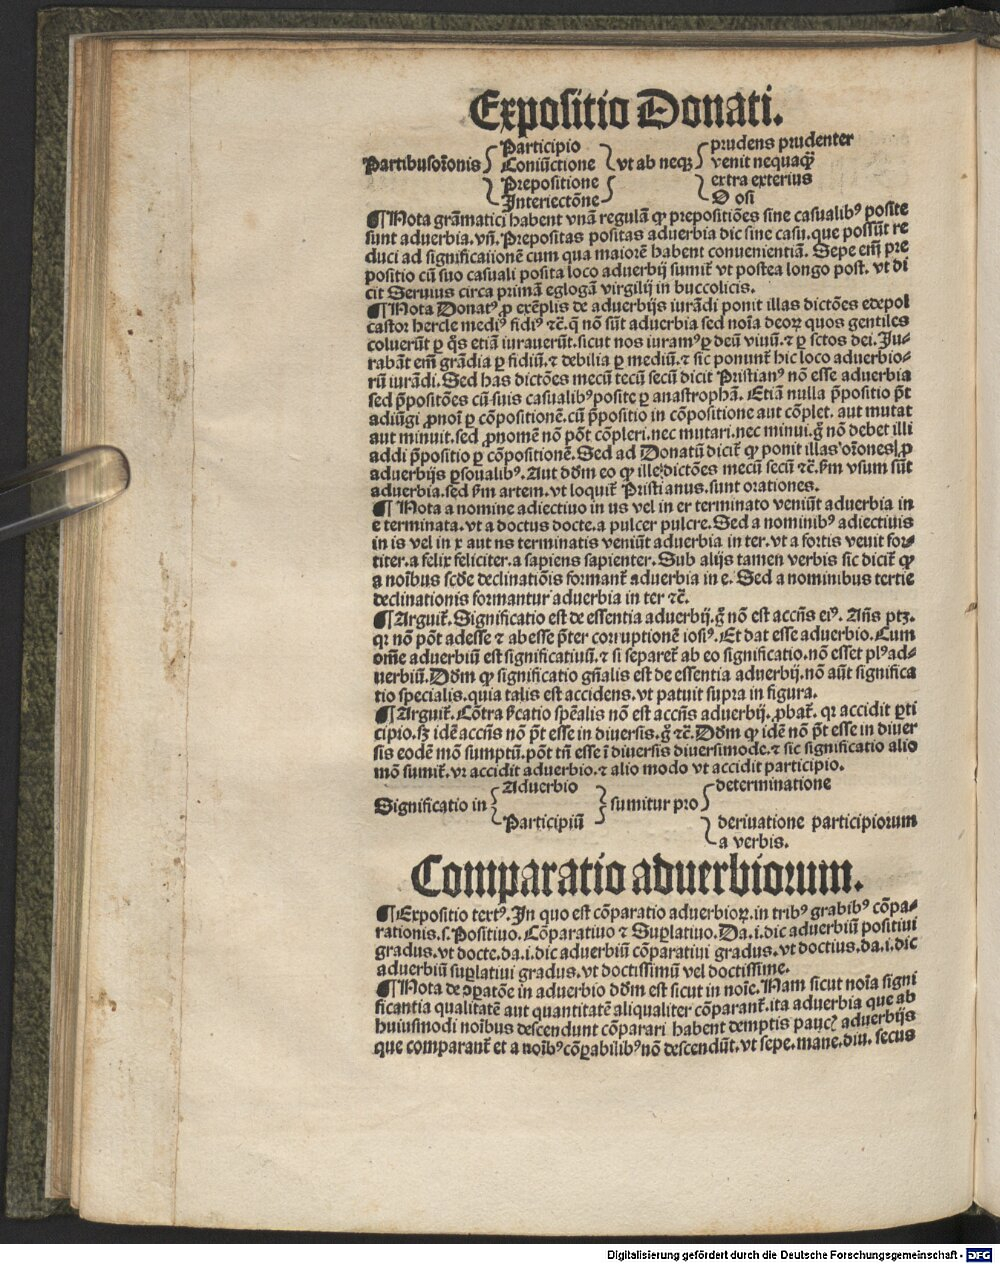 Expositio Donati.
Partibusor̄onis Participio vt ab neqꝫ prudens prudenter
Coniūctione venit nequaqȝ̄
Prepositione extra exterius
Interiectōne O osi
¶ Nota grāmatici habent vnā regulā ꝙ prepositiōes sine casualibꝰ posite
sunt aduerbia. vñ. Prepositas positas aduerbia dic sine casu. que possūt re
duci ad significationē cum qua maiorē habent conuenientiā. Sepe em̄ pre
positio cū suo casuali posita loco aduerbij sumit̄ vt postea longo post. vt di
cit Seruius circa primā eglogā virgilij in buccolicis.
¶ Nota Donatꝰ ꝓ exēplis de aduerbijs iurādi ponit illas dictōes edepol
castor hercle mediꝰ fidiꝰ ⁊c̄. q̄ nō sūt aduerbia sed noīa deoꝝ quos gentiles
coluerūt ꝑ q̄s etiā iurauerūt. sicut nos iuramꝰ ꝑ deū viuū. ⁊ ꝑ sctos dei. Ju-
rabāt em̄ grādia ꝑ fidiū. ⁊ debilia ꝑ mediū. ⁊ sic ponunt̄ hic loco aduerbio-
rū iurādi. Sed has dictōes mecū tecū secū dicit Pristianꝰ nō esse aduerbia
sed p̄positōes cū suis casualibꝰ posite ꝑ anastrophā. Etiā nulla p̄positio p̄t
adiūgi ꝓnoī ꝑ cōpositionē. cū p̄positio in cōpositione aut cōplet. aut mutat
aut minuit. sed ꝓnomē nō pōt cōpleri. nec mutari. nec minui. g̊ nō debet illi
addi p̄positio ꝑ cōpositionē. Sed ad Donatū dicit̄ ꝙ ponit illas or̄ones ꝓ
aduerbijs ꝑsoualibꝰ. Aut dōm eo ꝙ ille dictōes mecū secū ⁊c̄. ẜm vsum sūt
aduerbia. sed ẜm artem. vt loquit̄ Pristianus. sunt orationes.
¶ Nota a nomine adiectiuo in us vel in er terminato veniūt aduerbia in
e terminata. vt a doctus docte. a pulcer pulcre. Sed a nominibꝰ adiectiuis
in is vel in x aut ns terminatis veniūt aduerbia in ter. vt a fortis venit for-
titer. a felix feliciter. a sapiens sapienter. Sub alijs tamen verbis sic dicit̄ ꝙ
a noībus scd̄e declinatiōis formant̄ aduerbia in e. Sed a nominibus tertie
declinationis formantur aduerbia in ter ⁊c̄.
¶ Arguit̄. Significatio est de essentia aduerbij. g̊ nō est accn̄s eiꝰ. Ān̄s ptꝫ.
qꝛ nō pōt adesse ⁊ abesse p̄ter corruptionē iosiꝰ. Et dat esse aduerbio. Cum
om̄e aduerbiū est significatiuū. ⁊ si separet̄ ab eo significatio. nō esset plꝰ ad-
uerbiū. Dōm ꝙ significatio gn̄alis est de essentia aduerbij. nō aūt significa
tio specialis. quia talis est accidens. vt patuit supra in figura.
¶ Arguit̄. Cōtra ẜcatio spēalis nō est accn̄s aduerbij. ꝓbat̄. qꝛ accidit ꝑti
cipio. sꝫ idē accn̄s nō p̄t esse in diuersis. g̊ ⁊c̄. Dōm ꝙ idē nō p̄t esse in diuer
sis eodē mō sumptū. pōt tn̄ esse ī diuersis diuersimode. ⁊ sic significatio alio
mō sumit̄. vꝛ accidit aduerbio. ⁊ alio modo vt accidit participio.
Significatio in Aduerbio sumitur pro determinatione
Participiū deriuatione participiorum
a verbis.
Comparatio aduerbiorum.
¶ Expositio textꝰ. In quo est cōparatio aduerbioꝝ. in tribꝰ grabibꝰ cōpa-
rationis. s. Positiuo. Cōparatiuo ⁊ Suꝑlatiuo. Da. i. dic aduerbiū positiui
gradus. vt docte. da. i. dic aduerbiū cōparatiui gradus. vt doctius. da. i. dic
aduerbiū suꝑlatiui gradus. vt doctissimū vel doctissime.
¶ Nota de ꝯꝑatōe in aduerbio dōm est sicut in noīe. Nam sicut noīa signi
ficantia qualitatē aut quantitatē aliqualiter cōparant̄. ita aduerbia que ab
huiusmodi noībus descendunt cōparari habent demptis paucꝭ aduerbijs
que comparant̄ et a noībꝰ cōꝑabilibꝰ nō descendūt. vt sepe. mane. diu. secus
Digitalisierung gefördert durch die Deutsche Forschungsgemeinschaft - DFG